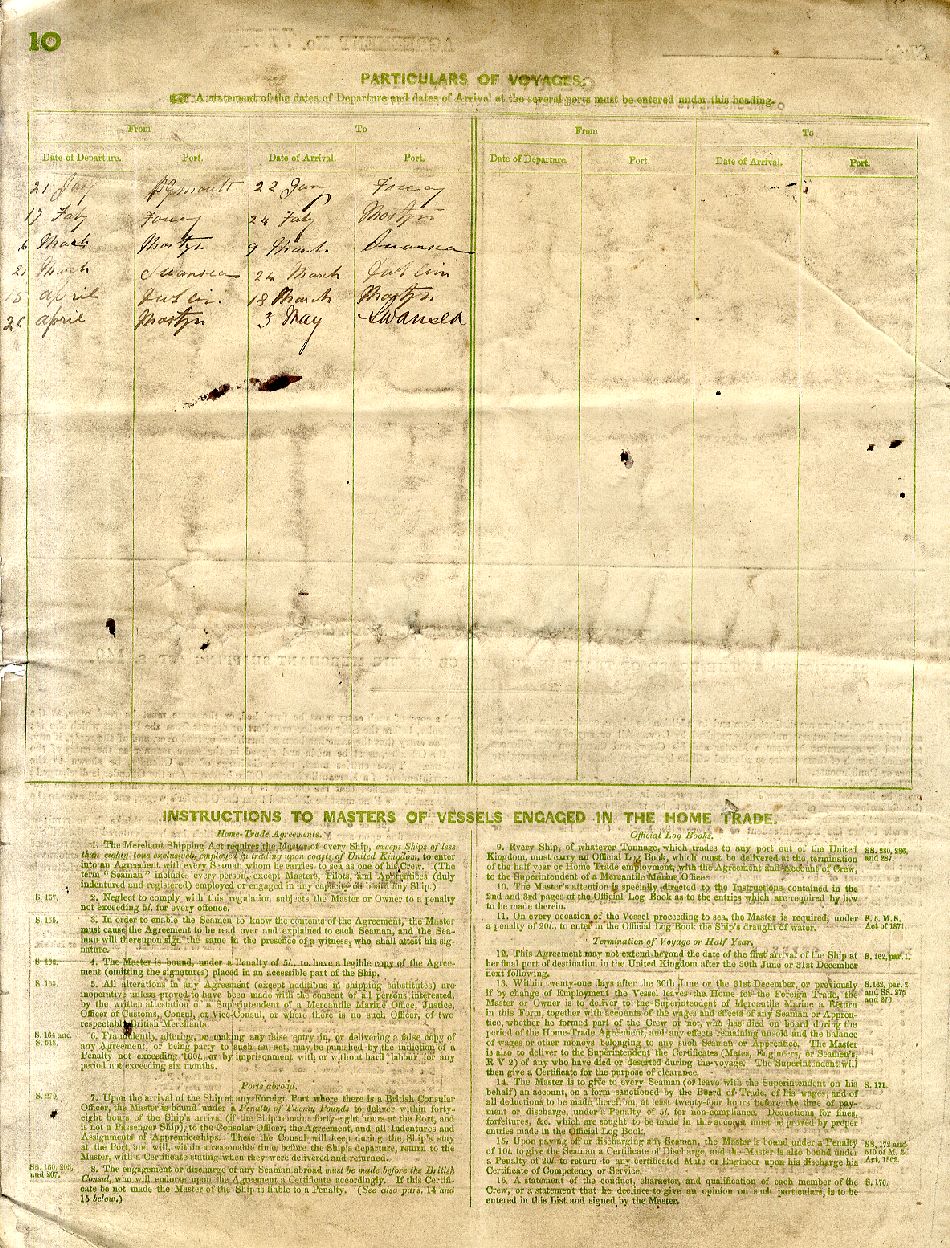 10
PARTICULARS OF VOYAGES.
A statement of the dates of Departure and dates of Arrival at the several ports must be entered under this heading.
From To From To
Date of Departure. Port. Date of Arrival. Port. Date of Departure. Port. Date of Arrival. Port.
21 Jay Plymouth 22 Jany Fowey
17 Feby Fowey 24 Feby Mostyn
6 March Mostyn 9 March Swansea
21 March Swansea 24 March Dublin
15 april Dublin 18 March Mostyn
26 april Mostyn 3 May Swansea
INSTRUCTIONS TO MASTERS OF VESSELS ENGAGED IN THE HOME TRADE.
Home-Trade Agreements.
1. The Merchant Shipping Act requires the Master of every Ship, except Ships of less
than eighty tons exclusively employed in trading upon coasts of United Kingdom, to enter
into an Agreement with every Seaman whom he carries to sea as one of his Crew. (The
term "Seaman" includes every person, except Masters, Pilots, and Apprentices (duly
indentured and registered) employed or engaged in any capacity on board any Ship.)
S. 157.
2. Neglect to comply with this regulation subjects the Master or Owner to a penalty
not exceeding 5l. for every offence.
S. 155.
3. In order to enable the Seamen to know the contents of the Agreement, the Master
must cause the Agreement to be read over and explained to each Seaman, and the Sea-
man will thereupon sign the same in the presence of a witness, who shall attest his sig-
nature.
4. The Master is bound, under a Penalty of 5l., to have a legible copy of the Agree-
ment (omitting the signatures) placed in an accessible part of the Ship.
5. All alterations in any Agreement (except additions in shipping substitutes) are
inoperative unless proved to have been made with the consent of all persons interested,
by the written attestation of a Superintendent of a Mercantile Marine Office, Justice,
Officer of Customs, Consul, or Vice-Consul, or where there is no such Officer, of two
respectable British Merchants.
6. Fraudulently altering, or making any false entry in, or delivering a false copy of
any Agreement, or being party to such an act, may be punished by the infliction of
Penalty not exceeding 100l. or by imprisonment with or without hard labour for any
period not exceeding six months.
Ports abroad.
7. Upon the arrival of the Ship at any Foreign Port where there is a British Consular
Officer, the Master is bound under a Penalty of Twenty Pounds to deliver within forty-
eight hours of the Ship's arrival (if the Ship stays forty-eight hours at the Port, and
is not a Passenger Ship), to the Consular Officer, the Agreement, and all Indentures and
Assignments of Apprenticeships. These the Consul will keep during the Ship's stay
at the Port, and will, within a reasonable time, before the Ship's departure, return to the
Master, with a Certificate stating when they were delivered and returned.
8. The engagement or discharge of any Seaman abroad must be made before the British
Consul, who will endorse upon the Agreement a Certificate accordingly. If this Certifi-
cate be not made the Master of the Ship is liable to a Penalty. (See also pars. 14 and
15 below.)
Official Log Books.
9. Every Ship, of whatever Tonnage, which trades to any port out of the United
Kingdom, must carry an Official Log Book, which must be delivered at the termination
of the half year or Home Trade employment, with the Agreement and Account of Crew,
to the Superintendent of a Mercantile Marine Office.
10. The Master's attention is specially directed to the Instructions contained in the
2nd and 3rd pages of the Official Log Book as to the entries which are required by law
to be made therein.
11. On every occasion of the Vessel proceeding to sea, the Master is required, under
a penalty of 20l., to enter in the Official Log Book the Ship's draught of water.
Act of 1871
Termination of Voyage or Half Year.
12. This Agreement may not extend beyond the date of the first arrival of the Ship at
her final port of destination in the United Kingdom after the 30th June or 31st December
next following.
13. Within twenty-one days after the 30th June or the 31st December, or previously
if by change of Employment the Vessel leaves the Home for the Foreign Trade, the
Master or Owner is to deliver to the Superintendent of Mercantile Marine a Return
in this Form, together with accounts of the wages and effects of any Seaman or Appren-
tice, whether he formed part of the Crew or not, who has died on board during the
period of the Home Trade Agreement, and any effects remaining unsold and the balance
of wages or other moneys belonging to any such Seaman or Apprentice. The Master
is also to deliver to the Superintendent the Certificates (Mates, Engineers, or Seamen's,
R V 2) of any who have died or deserted during the voyage. The Superintendent will
then give a Certificate for the purpose of clearance.
S. 171.
14. The Master is to give to every Seaman (or leave with the Superintendent on his
behalf) an account, on a form sanctioned by the Board of Trade, of his wages, and of
all deductions to be made therefrom at least twenty-four hours before the time of pay-
ment or discharge, under a Penalty of 5l. for non-compliance. Deductions for fines,
forfeitures, &c. which are sought to be made in the account must be proved by proper
entries made in the Official Log Book.
15. Upon paying off or discharging any Seaman, the Master is bound under a Penalty
of 10l. to give the Seaman a Certificate of Discharge, and the Master is also bound under
a Penalty of 20l. to return to any certificated Mate or Engineer upon his discharge his
Certificate of Competency or Service.
S. 176.
16. A statement of the conduct, character, and qualification of each member of the
Crew, or a statement that he declines to give an opinion on such particulars, is to be
entered in this List and signed by the Master.